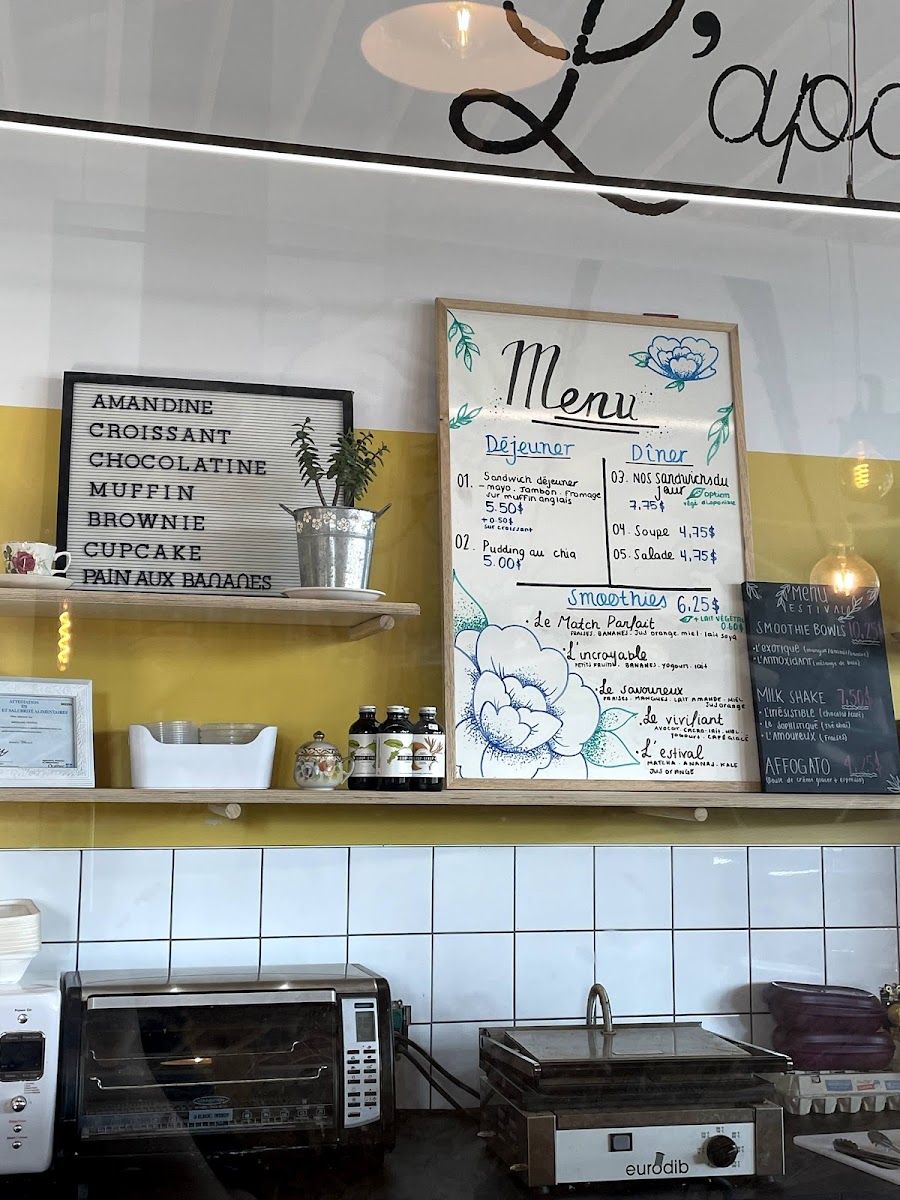 L'apo
AMANDINE
CROISSANT
CHOCOLATINE
MUFFIN
BROWNIE
CUPCAKE
PAIN AUX BANANES
Menu
Déjeuner
01. Sandwich déjeuner
- mayo. Jambon. Fromage
sur muffin anglais
5.50$
+0.50$
sur croissant
02. Pudding au chia
5.00$
Dîner
03. Nos sandwichs du
jour
option
végé disponible
7,75$
04. Soupe 4,75$
05. Salade 4,75$
Smoothies 6,25$
+ LAIT VÉGÉTAL
0.60$
• Le Match Parfait
FRAISES. BANANES. Jus orange. miel. lait soya
• L'incroyable
PETITS FRUITS. BANANES. yogourt. lait
• Le savoureux
FRAISES. MANGUES. LAIT AMANDE. MIEL
Jus orange
• Le vivifiant
AVOCAT. CACAO. LAIT. MIEL.
CAFÉ GLACÉ
• L'estival
MATCHA. ANANAS. KALE
JUS ORANGE
Menu
ESTIVAL
SMOOTHIE BOWLS 10,25$
• L'EXOTIQUE
• L'ANTIOXYDANT
MILK SHAKE 7,50$
• L'IRRÉSISTIBLE
• LE SOPHISTIQUÉ
• L'AMOUREUX (Fraises)
AFFOGATO
(Boule de crème glacée + espresso)
ATTESTATION
EN
ET SALUBRITÉ ALIMENTAIRES
Power On
eurodib